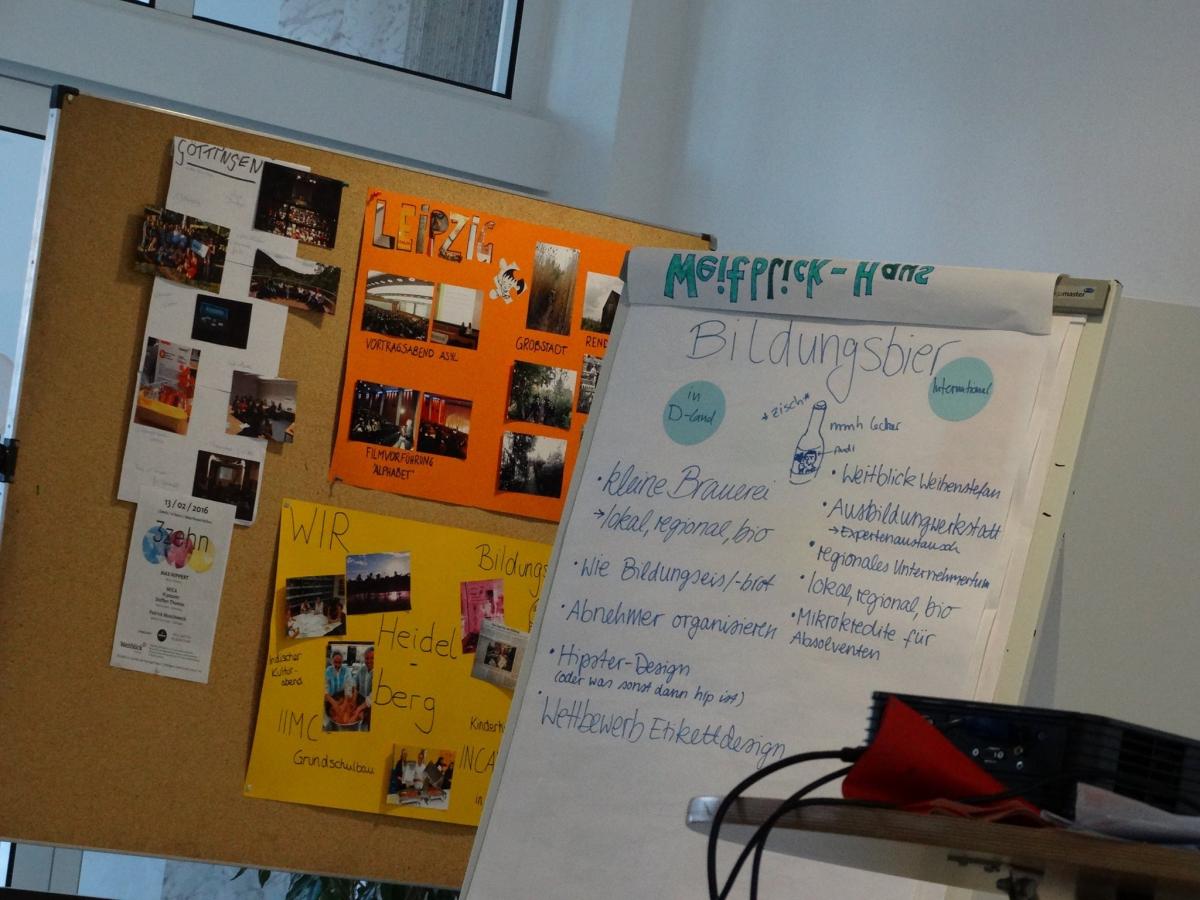 GÖTTINGEN
13/02/2016
3zehn
MAX RIPPERT
Weitblick
LEIPZIG
VORTRAGSABEND ASYL
GROßSTADT
REND
FILMVORFÜHRUNG
"ALPHABET"
WIR
Bildungs
Heidel
-
berg
Indischer
Kultur-
abend
IIMC
Grundschulbau
INCA
in
Weitblick-Haus
master
Bildungsbier
in
D-land
International
*zisch*
mmh lecker
• kleine Brauerei
→ lokal, regional, bio
• Wie Bildungseis/-brot
• Abnehmer organisieren
• Hipster-Design
(oder was sonst dann hip ist)
• Wettbewerb Etikettdesign
• Weitblick Weihenstefan
• Ausbildungwerkstatt
→ Expertenaustausch
• regionales Unternehmertum
• lokal, regional, bio
• Mikrokredite für
Absolventen